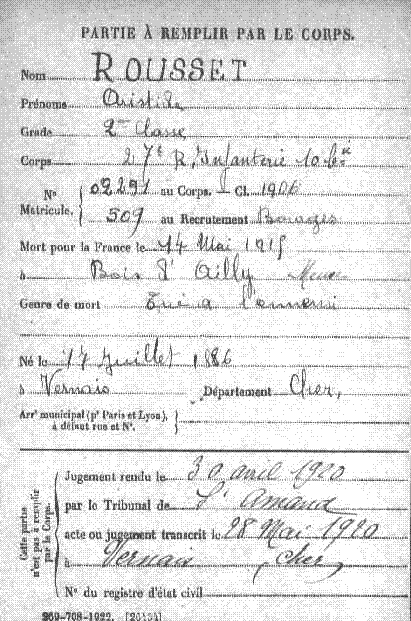 PARTIE À REMPLIR PAR LE CORPS.
Nom ROUSSET
Prénoms Aristide
Grade 2me Classe
Corps 27e R. Infanterie 10 Cie
No Matricule. 02291 au Corps. Cl. 1906
509 au Recrutement Bourges
Mort pour la France le 14 Mai 1915
à Bois d'Ailly Meuse
Genre de mort Tué à l'ennemi
Né le 17 Juillet 1886
à Vernais Département Cher,
Arrt municipal (pr Paris et Lyon),
à défaut rue et No.
Cette partie n'est pas à remplir par le Corps.
Jugement rendu le 30 avril 1920
par le Tribunal de St Amand
acte ou jugement transcrit le 28 Mai 1920
à Vernais (Cher)
No du registre d'état civil